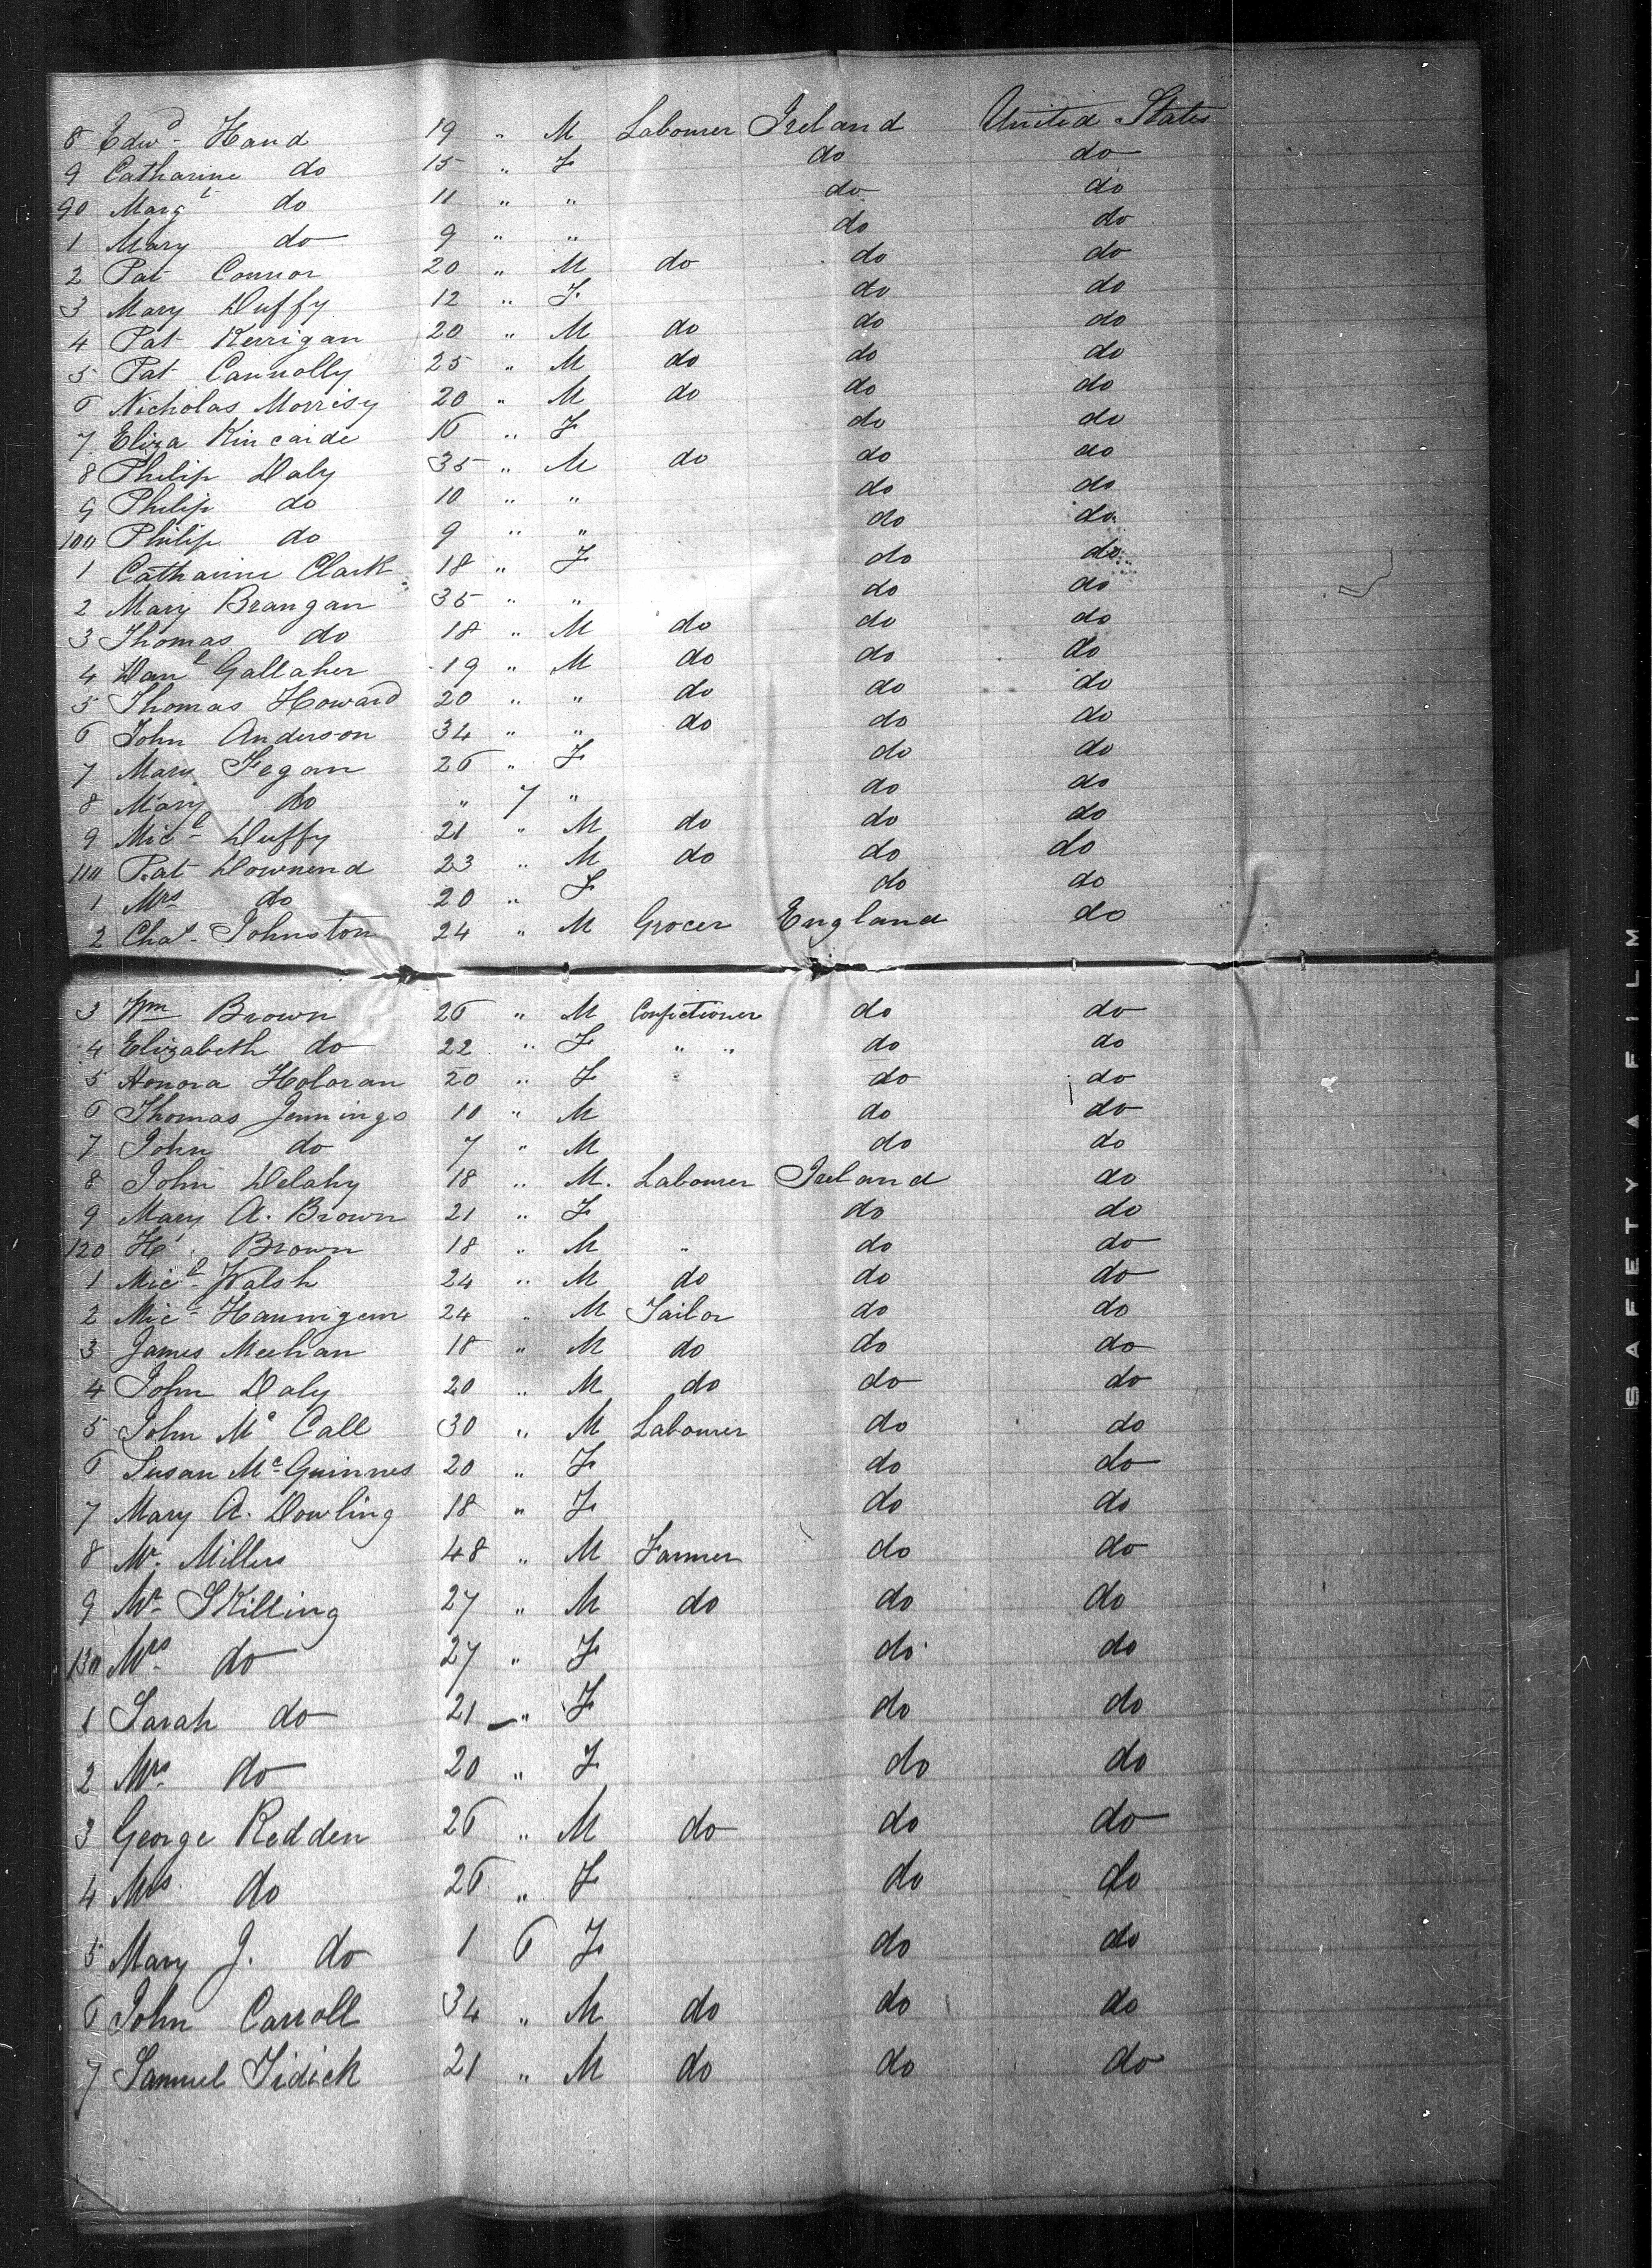 8 Edwd Hand 19 " M Labourer Ireland United States
9 Catharine do 15 " F do do
90 Margt do 11 " " do do
1 Mary do 9 " " do do
2 Pat Connor 20 " M do do do
3 Mary Duffy 12 " F do do
4 Pat Kerrigan 20 " M do do do
5 Pat Connolly 25 " M do do do
6 Nicholas Morrisy 20 " M do do do
7 Eliza Kincaide 16 " F do do
8 Philip Daly 35 " M do do do
9 Philip do 10 " " do do
100 Philip do 9 " " do do
1 Catharine Clark 18 " F do do
2 Mary Brangan 35 " " do do
3 Thomas do 18 " M do do do
4 Danl Gallaher 19 " M do do do
5 Thomas Howard 20 " " do do do
6 John Anderson 34 " " do do do
7 Mary Fegan 26 " F do do
8 Mary do " 7 " do do
9 Micl Duffy 21 " M do do do
110 Pat Downend 23 " M do do do
1 Mrs do 20 " F do do
2 Chas Johnston 24 " M Grocer England do
3 Wm Brown 26 " M Confectioner do do
4 Elizabeth do 22 " F " " do do
5 Honora Holoran 20 " F do do
6 Thomas Jennings 10 " M do do
7 John do 7 " M do do
8 John Delahy 18 " M. Labourer Ireland do
9 Mary A. Brown 21 " F do do
120 H. Brown 18 " M " do do
1 Micl Walsh 24 " M do do do
2 Micl Hannigan 24 " M Tailor do do
3 James Meehan 18 " M do do do
4 John Daly 20 " M do do do
5 John Mc Call 30 " M Labourer do do
6 Susan Mc Guinnes 20 " F do do
7 Mary A. Dowling 18 " F do do
8 Mr. Millers 48 " M Farmer do do
9 Mr Skilling 27 " M do do do
130 Mrs do 27 " F do do
1 Sarah do 21 " F do do
2 Mrs do 20 " F do do
3 George Redden 26 " M do do do
4 Mrs do 26 " F do do
5 Mary J. do 1 6 F do do
6 John Carroll 34 " M do do do
7 Samuel 21 " M do do do
SAFETY A FILM